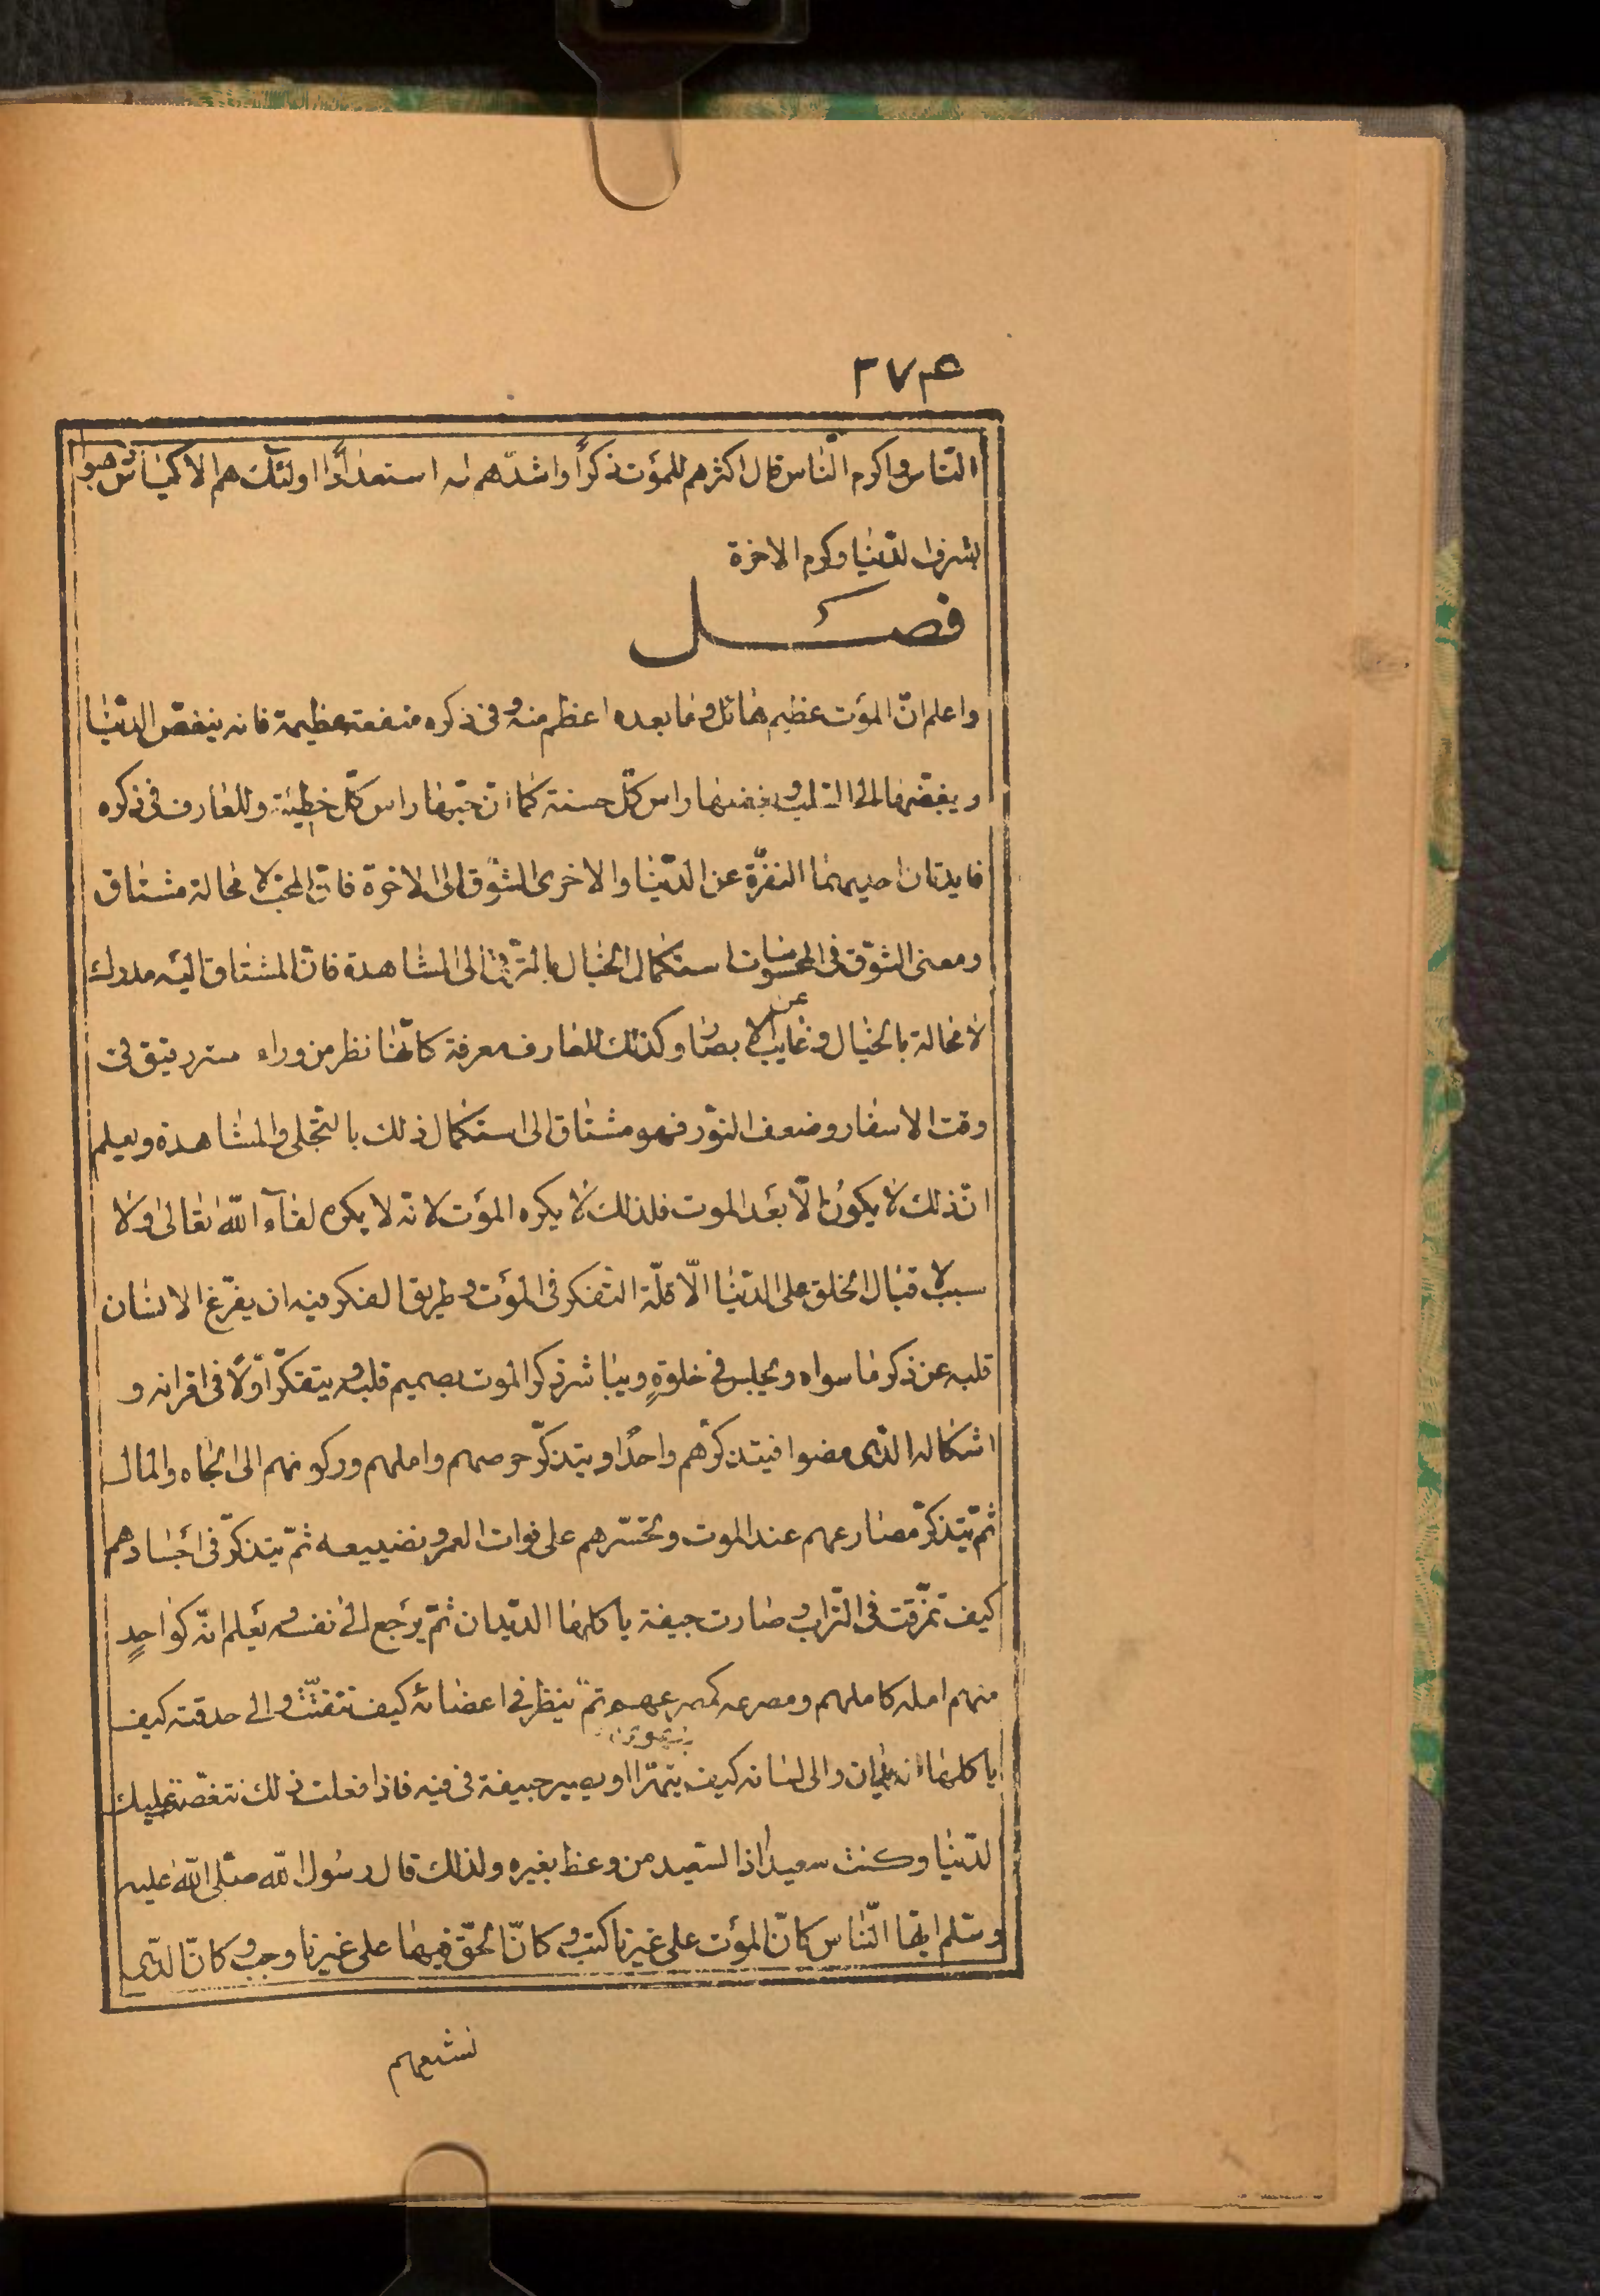 ٢٧٤
النّاس واكرم النّاس قال اكثرهم للموت ذكرًا واشدّهم له استعدادًا اولئك هم الاكياس ذهبوا
بشرف الدّنيا وكرم الاخرة
فصل
واعلم انّ الموت عظيم هائل وما بعده اعظم منه وفى ذكره منفعة عظيمة فانه ينغّص الدّنيا
ويبغّضها الى القلب وبغضها راس كلّ حسنة كما انّ حبّها راس كلّ خطيئة وللعارف فى ذكره
فايدتان احديهما النفرة عن الدّنيا والاخرى الشّوق الى الاخرة فانّ المحبّ لا محالة مشتاق
ومعنى الشّوق فى المحسوسات استكمال الخيال بالترّقى الى المشاهدة فانّ المشتاق اليه مدرك
لا محالة بالخيال وغايب عن الابصار وكذلك للعارف معرفة كانّها نظر من وراء ستر رقيق فى
وقت الاسفار وضعف النّور فهو مشتاق الى استكمال ذلك بالتجلى والمشاهدة ويعلم
انّ ذلك لا يكون الّا بعد الموت فلذلك لا يكره الموت لانّه لا يكره لقاء اللّه تعالى ولا
سبب لاقبال الخلق على الدّنيا الّا قلّة التّفكر فى الموت وطريق الفكر فيه ان يفرّغ الانسان
قلبه عن ذكر ما سواه ويجلس فى خلوةٍ ويباشر ذكر الموت بصميم قلبه ويتفكّر اوّلًا فى اقرانه و
اشكاله الذى مضوا فيتذكرهم واحدًا ويتذكّر حرصهم واملهم وركونهم الى الجاه والمال
ثمّ يتذكّر مصارعهم عند الموت وتحسّرهم على فوات العمر وتضييعه ثمّ يتذكّر فى اجسادهم
كيف تمزّقت فى التراب وصارت جيفة ياكلها الدّيدان ثمّ يرجع الى نفسه ويعلم انّه كواحدٍ
منهم امله كاملهم ومصرعه كمصرعهم ثمّ ينظر فى اعضائه كيف تتفتّت والى حدقته كيف
ياكلها الديدان والى لسانه كيف يتهرّا ويصير جيفة فى فيه فاذا فعلت ذلك تنغّصت عليك
الدّنيا وكنت سعيدًا اذ السّعيد من وعظ بغيره ولذلك قال رسول اللّه صلّى اللّه عليه
وسلّم ايّها النّاس كانّ الموت على غيرنا كتب وكانّ الحقّ فيها على غيرنا وجب وكانّ الذى
نشيعهم